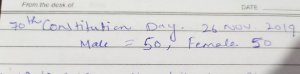 From the desk of DATE
70th Constitution Day. 26 Nov 2019
Male = 50, Female 50